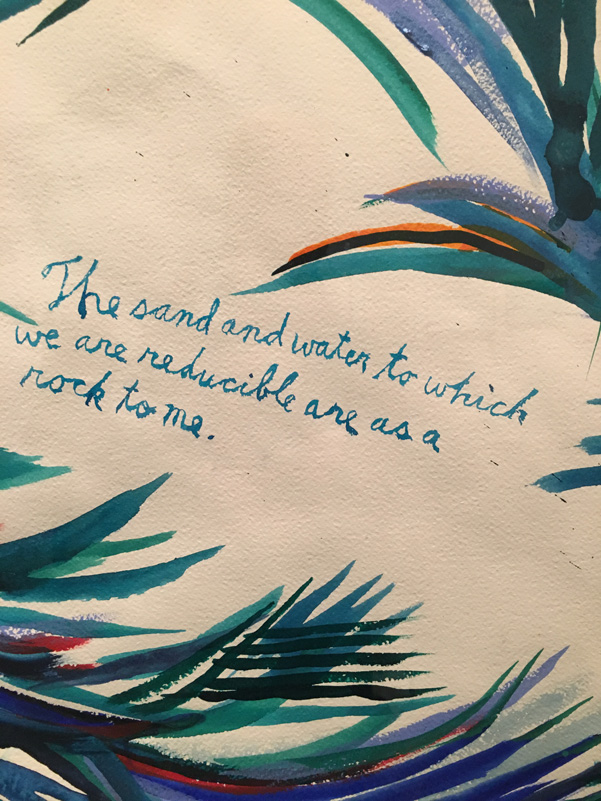 The sand and water to which
we are reducible are as a
rock to me.